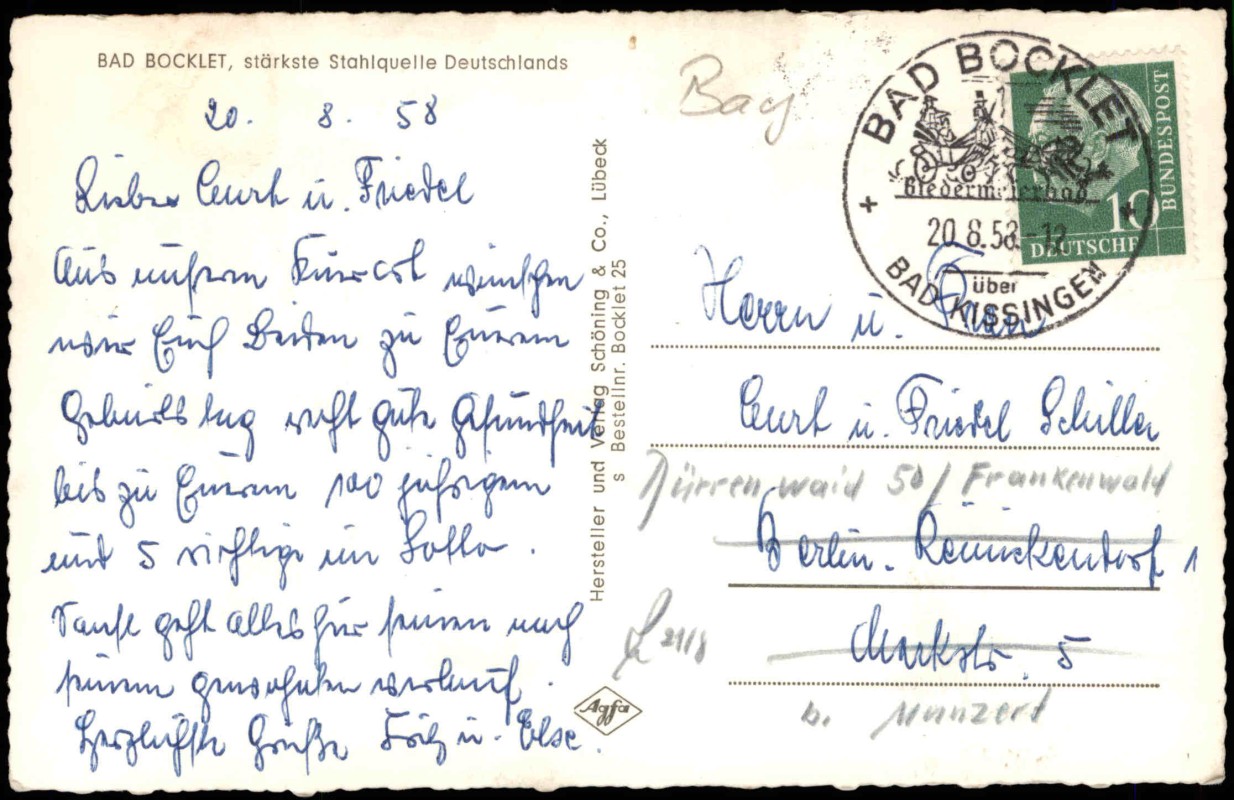 BAD BOCKLET, stärkste Stahlquelle Deutschlands
20. 8. 58
Lieber Curt u. Friedel
Aus unserem Kuurort wünschen
wir Euch Beiden zu Eurem
Geburtstag recht gute Gesundheit
bis zu Eurem 100 jährigem
und 5 richtige im Lotto.
Sonst geht alles hier seinen nach
seinem gewohnten verlauf.
Herzlichste Grüße Fritz u. Else.
Hersteller und Verlag Schöning & Co., Lübeck
s Bestellnr. Bocklet 25
Agfa
Bay
BAD BOCKLET
Biedermeierbad
20.8.58.-12
über
BAD KISSINGEN
DEUTSCHE
BUNDESPOST
10
Herrn u. Frau
Curt u. Friedel Schiller
Dürrenwaid 50 / Frankenwald
Berlin. Reinickendorf 1
Markstr. 5
b. Munzert
21/8